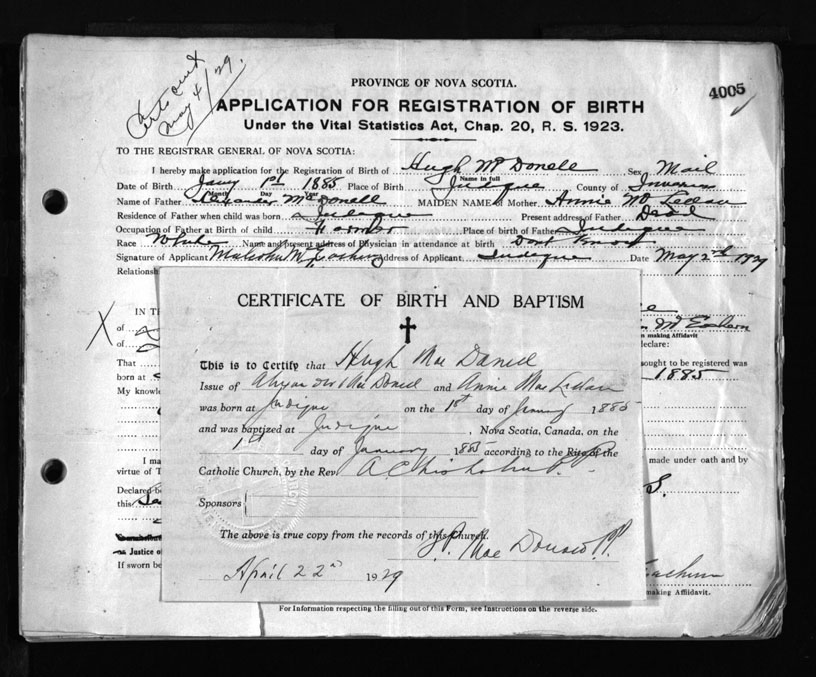 Cert out
May 4/29.
4005
PROVINCE OF NOVA SCOTIA.
APPLICATION FOR REGISTRATION OF BIRTH
Under the Vital Statistics Act, Chap. 20, R. S. 1923.
TO THE REGISTRAR GENERAL OF NOVA SCOTIA:
I hereby make application for the Registration of Birth of Hugh McDonell Sex Mail
Name in full
Date of Birth Jany 1st 1885 Place of Birth Judique County of
Month Day Year
Name of Father Alexander McDonell MAIDEN NAME of Mother Annie McLellan
Residence of Father when child was born Judique Present address of Father Dead
Occupation of Father at Birth of child Farmer Place of birth of Father Judique
Race White Name and present address of Physician in attendance at birth Dont Know
Signature of Applicant Malcolm McEachern Address of Applicant Judique Date May 2nd 1929
Relations
IN TH
X of
of
making Affidavit
declare:
That
sought to be registered was
born at 1885
My knowle
CERTIFICATE OF BIRTH AND BAPTISM
This is to Certify that Hugh Mac Donell
Issue of Alexander Mac Donell and Annie Mac Lellan
was born at Judique on the 1st day of January 1885
and was baptized at Judique, Nova Scotia, Canada, on the
1st day of January 1885 according to the Rite of the
Catholic Church, by the Rev. A Chisholm P.P.
Sponsors
The above is true copy from the records of this Church.
Mac Donald P.P.
April 22nd 1929
I ma made under oath and by
virtue of T
Declared be
this
Justice of
If sworn be
making Affidavit.
For Information respecting the filling out of this Form, see Instructions on the reverse side.